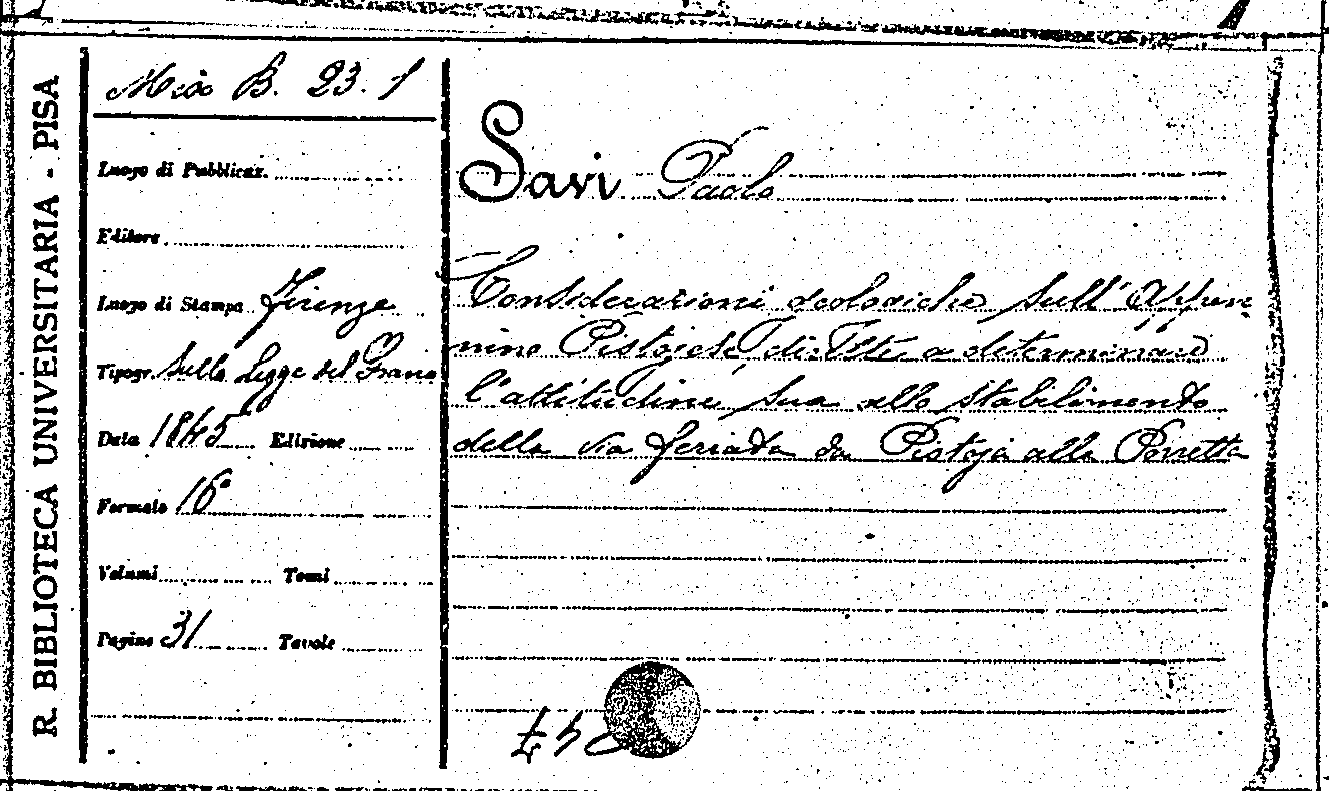 R. BIBLIOTECA UNIVERSITARIA - PISA
Misc B. 23. 1
Luogo di Pubblicaz.
Editore
Luogo di Stampa Firenze
Tipogr. Sulle Logge del Grano
Data 1845 Edizione
Formato 16°
Volumi Tomi
Pagine 31 Tavole
Savi Paolo
Considerazioni geologiche sull'Appen
nino Pistojese, dirette a determinare
l'attitudine sua allo stabilimento
della via ferrata da Pistoja alla Porretta